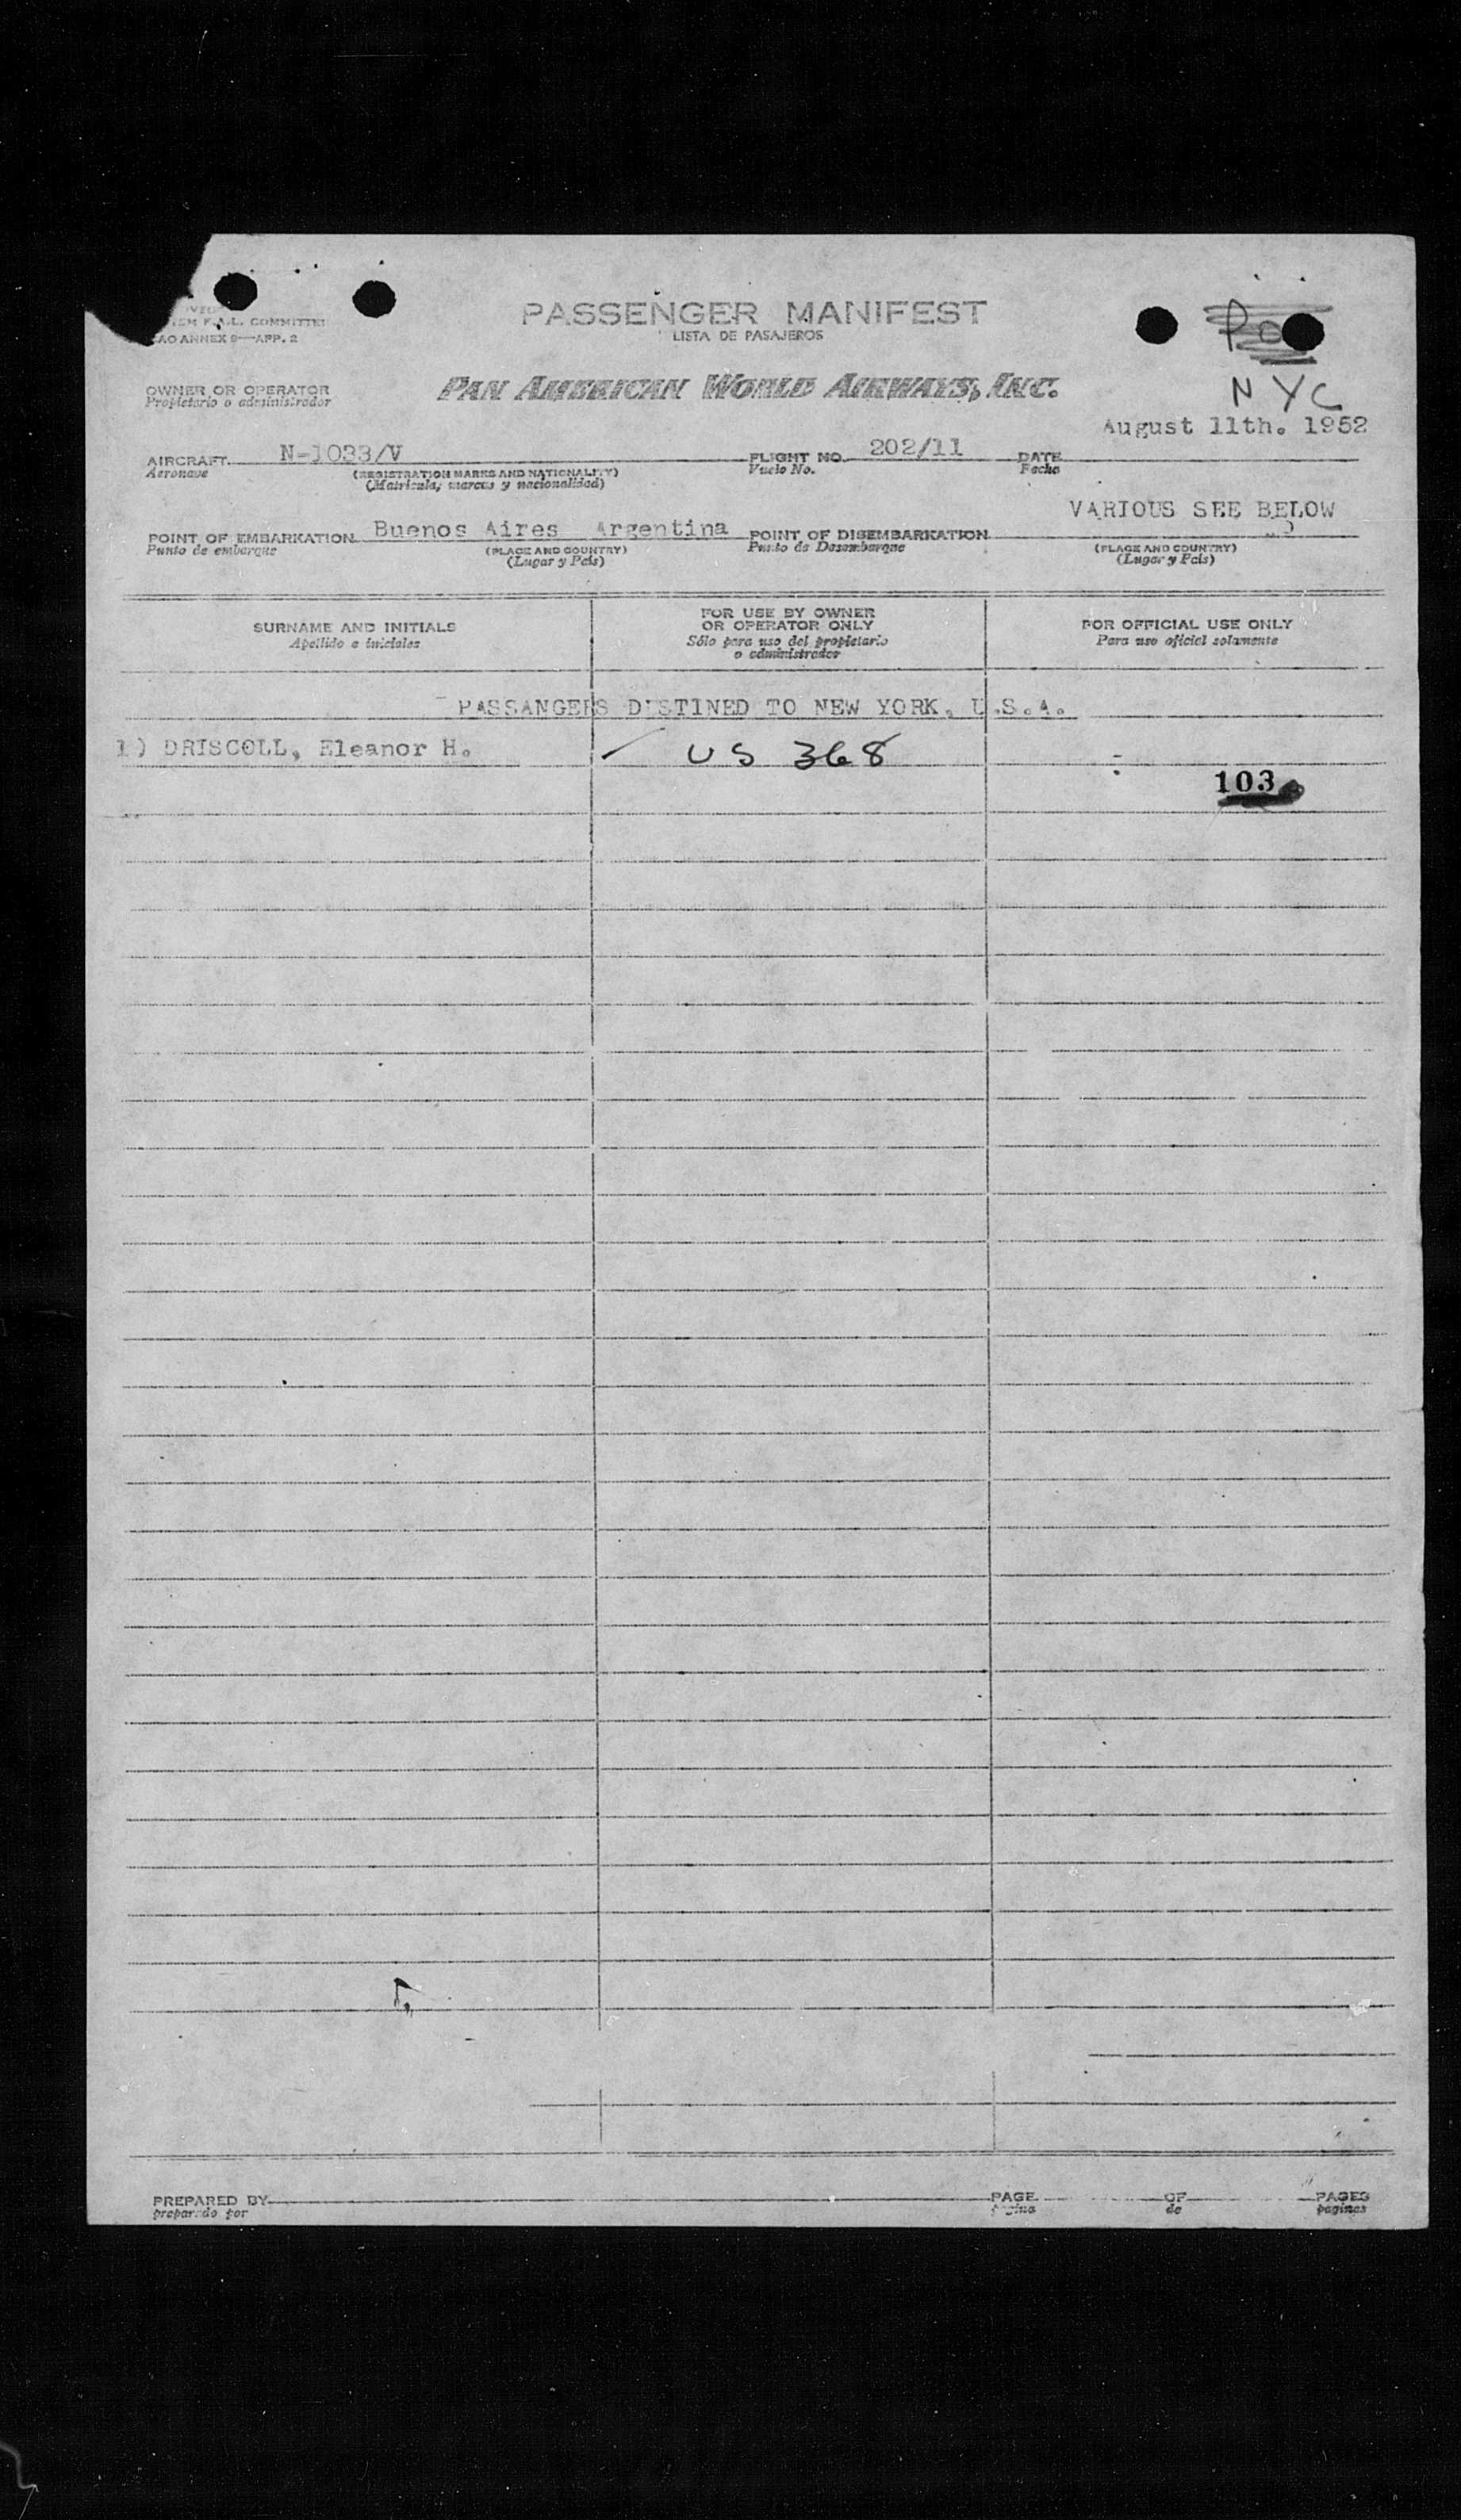 F.A.L. COMMITTEE
ANNEX 9—APP. 2
PASSENGER MANIFEST
LISTA DE PASAJEROS
NYC
OWNER OR OPERATOR
Propietario o administrador
PAN AMERICAN WORLD AIRWAYS, INC.
August 11th. 1952
AIRCRAFT N-1033/V FLIGHT NO. 202/11 DATE
Aeronave (REGISTRATION MARKS AND NATIONALITY) Vuelo No. Fecha
(Matrícula, marcas y nacionalidad)
VARIOUS SEE BELOW
POINT OF EMBARKATION Buenos Aires Argentina POINT OF DISEMBARKATION
Punto de embarque (PLACE AND COUNTRY) Punto de Desembarque (PLACE AND COUNTRY)
(Lugar y País) (Lugar y País)
SURNAME AND INITIALS
Apellido e iniciales
FOR USE BY OWNER
OR OPERATOR ONLY
Sólo para uso del propietario
o administrador
FOR OFFICIAL USE ONLY
Para uso oficial solamente
PASSANGERS DISTINED TO NEW YORK, U.S.A.
1) DRISCOLL, Eleanor H. US 368
103
PREPARED BY PAGE OF PAGES
preparado por página de paginas